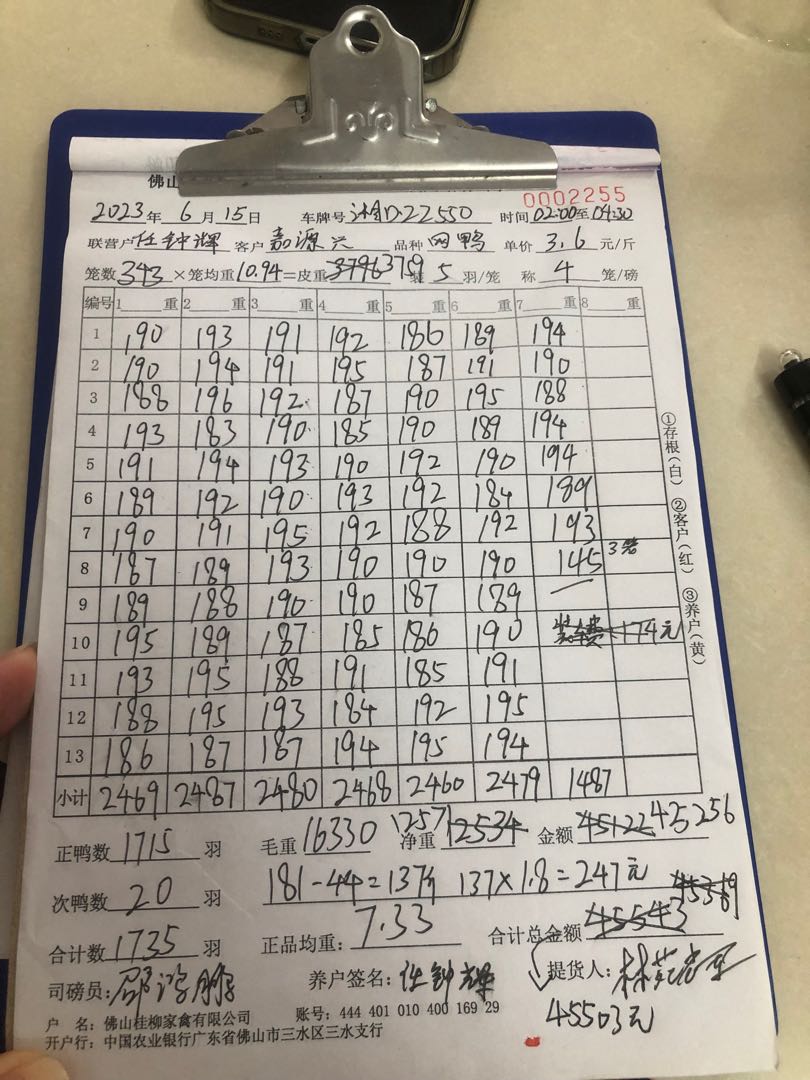 佛山
0002255
2023年 6月15日 车牌号 湘D.22550 时间 02:00至04:30
联营户 任钟辉 客户 嘉源兴 品种 网鸭 单价 3.6 元/斤
笼数 343 ×笼均重 10.94=皮重 3759 装 5 羽/笼 称 4 笼/磅
编号 1 重 2 重 3 重 4 重 5 重 6 重 7 重 8 重
1 190 193 191 192 186 189 194
2 190 194 191 195 187 191 190
3 188 196 192 187 190 195 188
4 193 183 190 185 190 189 194
5 191 194 193 190 192 190 194
6 189 192 190 193 192 184 189
7 190 191 195 192 188 192 193
8 187 189 193 190 190 190 145 3笼
9 189 188 190 190 187 189 —
10 195 189 187 185 186 190 装车费 174元
11 193 195 188 191 185 191
12 188 195 193 184 192 195
13 186 187 187 194 195 194
小计 2469 2487 2480 2468 2460 2479 1487
①存根(白) ②客户(红) ③养户(黄)
正鸭数 1715 羽 毛重 16330 净重 12571 12534 金额 45122 45256
次鸭数 20 羽 181-44=137斤 137×1.8=247元
45369
合计数 1735 羽 正品均重: 7.33 合计总金额 45543
司磅员: 养户签名: 任钟辉 提货人:
45503元
户 名: 佛山桂柳家禽有限公司 账号: 444 401 010 400 169 29
开户行: 中国农业银行广东省佛山市三水区三水支行